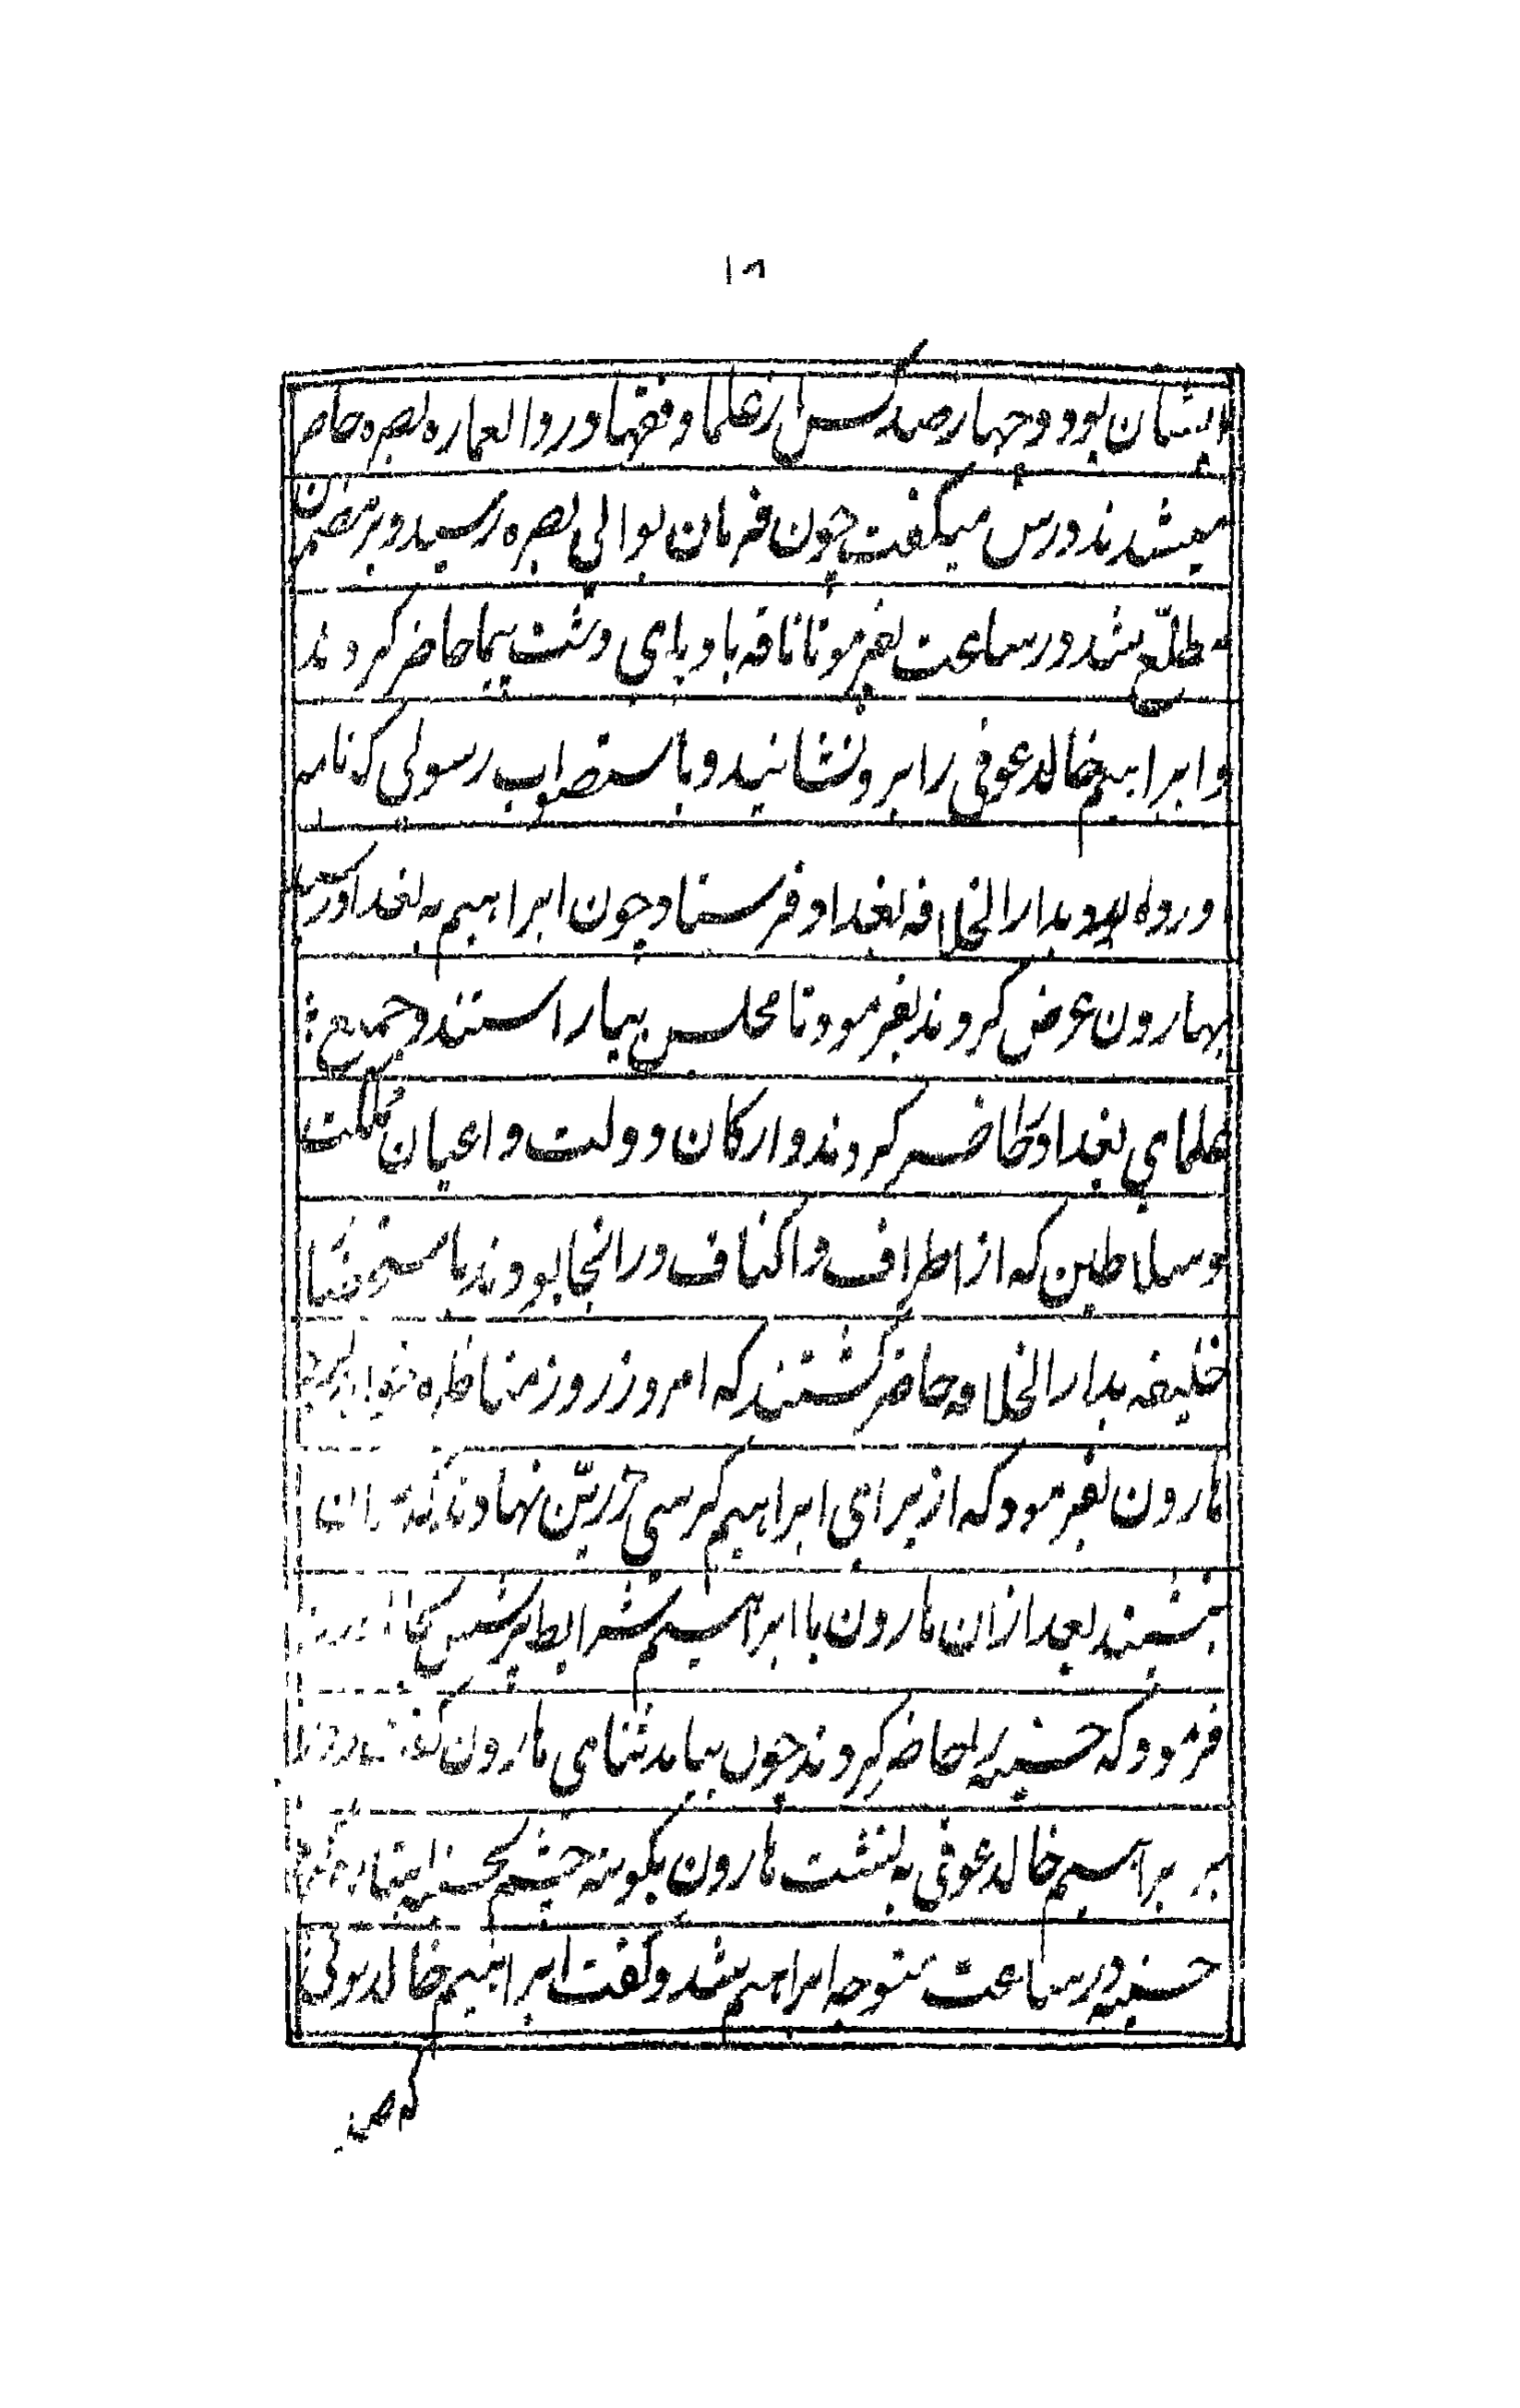 ۱۸
ایشان بود و چهار صد کس از علما و فقها در دار العماره بصره حاضر
میشدند و درس میگفت چون فرمان بوالی بصره رسید و بر مضمون
مطلّع شد در ساعت بفرمود تا ناقه باد پای دشت پیما حاضر کردند
و ابراهیم خالد عوفی را بر و نشانید و باستصواب رسولی که نامه
آورده بود بدار الخلافه بغداد فرستاد چون ابراهیم به بغداد رسید
بهارون عرض کردند بفرمود تا مجلس بیاراستند و جمیع
علمای بغداد حاضر کردند و ارکان دولت و اعیان مملکت
و سلاطین که از اطراف و اکناف در انجا بودند باستحضار
خلیفه بدار الخلافه حاضر گشتند که امروز روز مناظره
هارون بفرمود که از برای ابراهیم کرسی زرین نهادند
بنشیند بعد ازان هارون با ابراهیم شرایط پرسش بجا
فرمود که حسنیه را حاضر کردند چون بیامد ثنای هارون
بر ابراهیم خالد عوفی به نشست هارون بگوشه چشم بحسنیه
حسنیه در ساعت متوجه ابراهیم شد و گفت ابراهیم خالد توئی
که صد